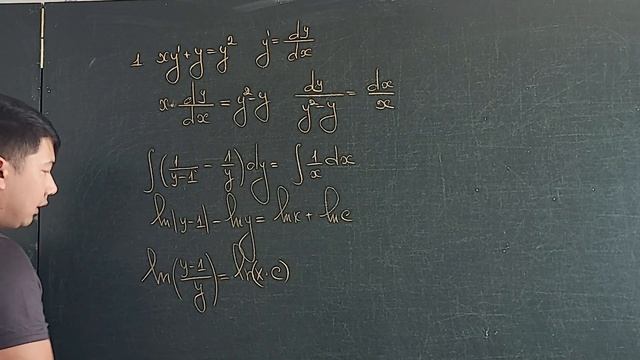 1 xy'+y=y² y'=dy/dx
x·dy/dx=y²-y dy/(y²-y)=dx/x
∫(1/(y-1)-1/y)dy=∫1/x dx
ln|y-1|-lny=lnx+lnc
ln((y-1)/y)=ln(x·c)